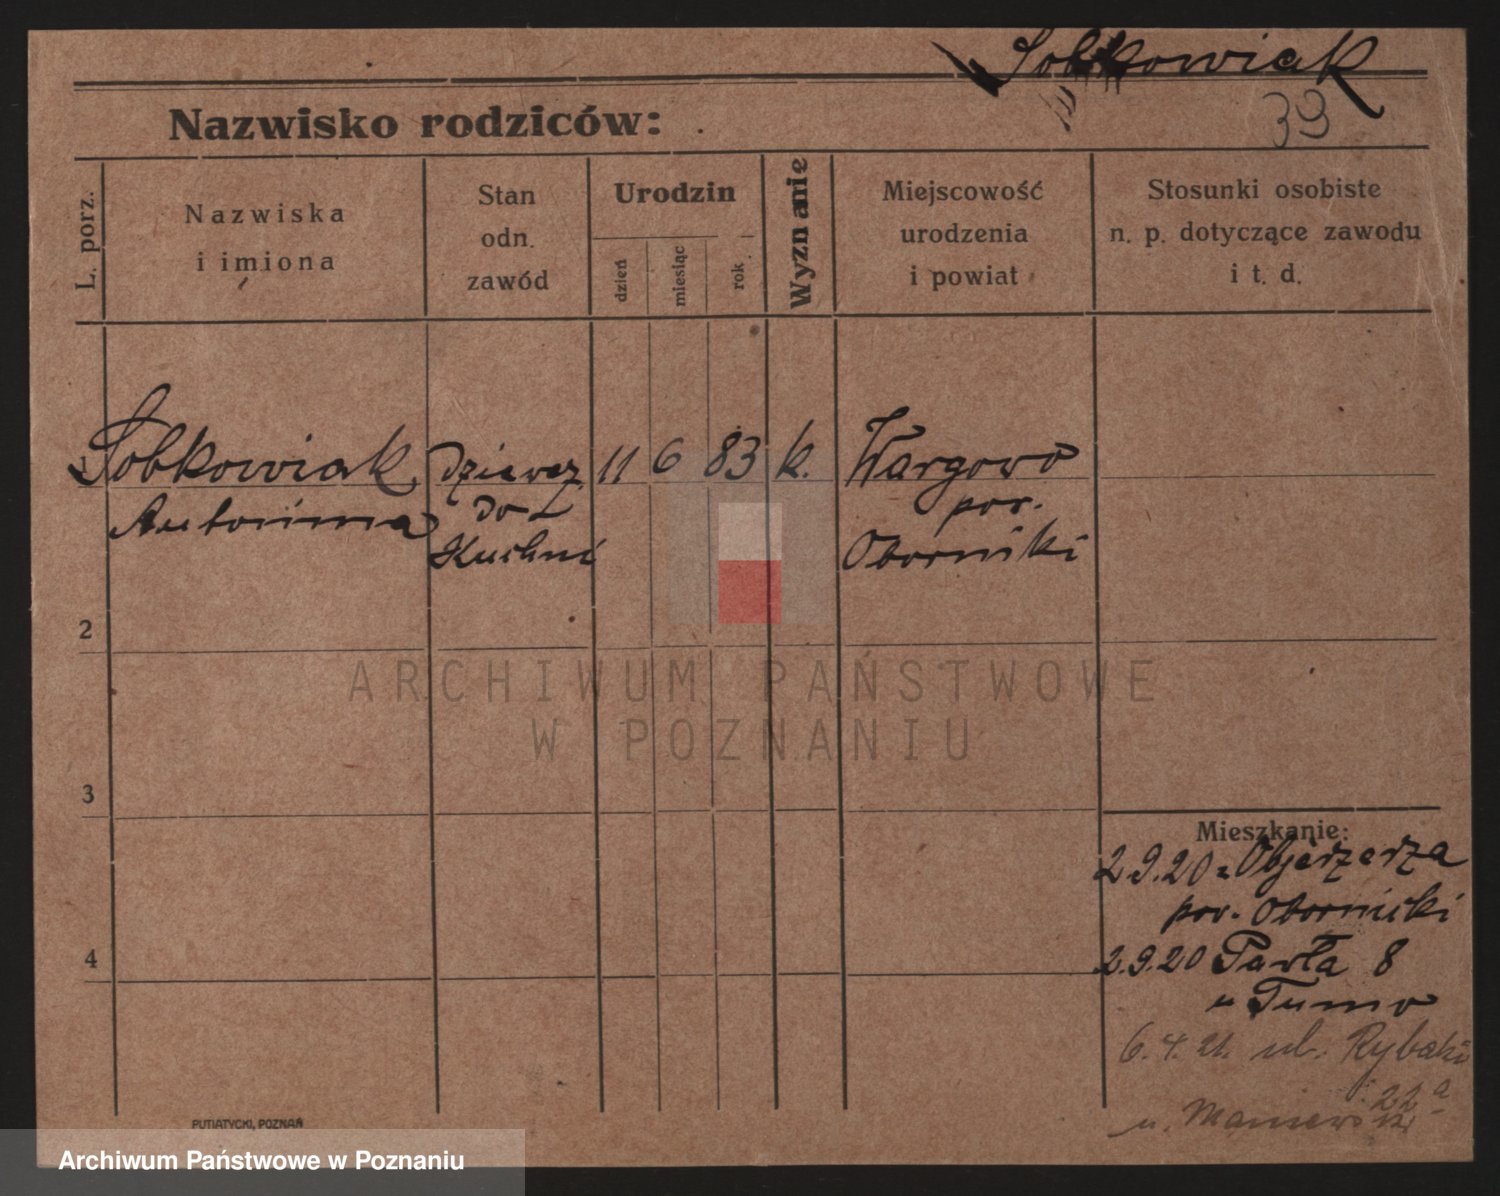 Sobkowiak
39
Nazwisko rodziców:
L. porz.
Nazwiska
i imiona
Stan
odn.
zawód
Urodzin
dzień
miesiąc
rok
Wyznanie
Miejscowość
urodzenia
i powiat
Stosunki osobiste
n. p. dotyczące zawodu
i t. d.
Sobkowiak dziewcz. 11 6 83 k. Wargowo
Antonina do pow.
Kuchni Oborniki
2
ARCHIWUM PAŃSTWOWE
W POZNANIU
3
Mieszkanie:
2.9.20 z Objezerza
pow. Oborniki
4
2.9.20 Pawła 8
u Tumo
6.4.21. ul. Rybaki
22a
u. Maniewski
PUTIATYCKI, POZNAŃ
Archiwum Państwowe w Poznaniu